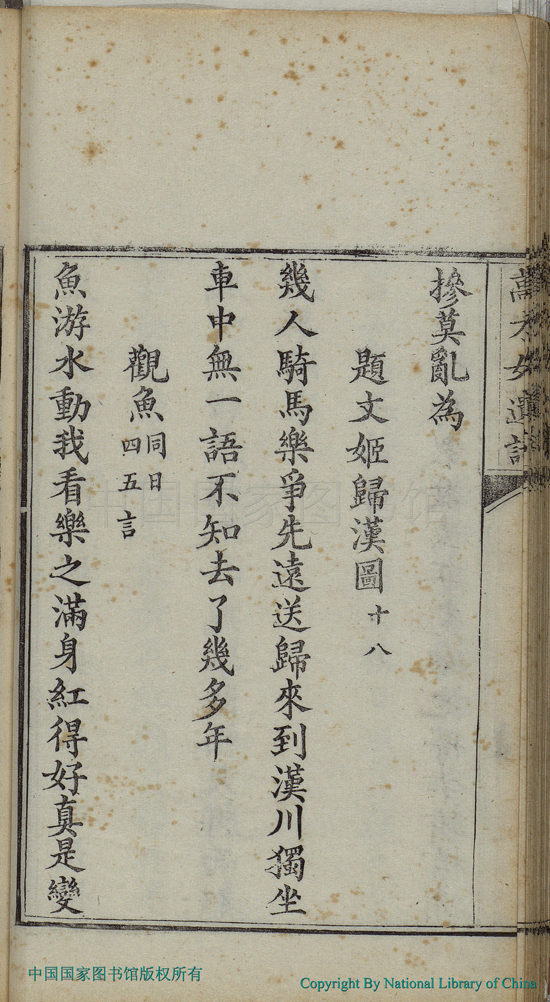 摻莫亂為
題文姬歸漢圖十八
幾人騎馬樂爭先遠送歸來到漢川獨坐
車中無一語不知去了幾多年
觀魚同日四五言
魚游水動我看樂之滿身紅得好真是變
中国国家图书馆版权所有
Copyright By National Library of China